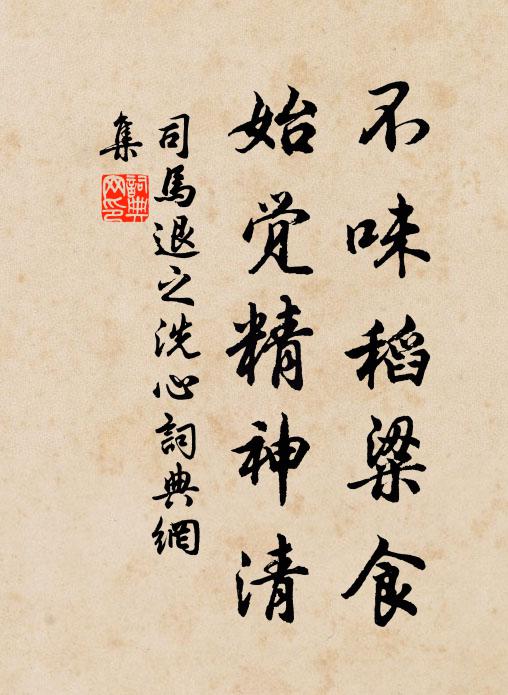 不味稻粱食
始觉精神清
司馬退之洗心詞典網
集
詞典
网印